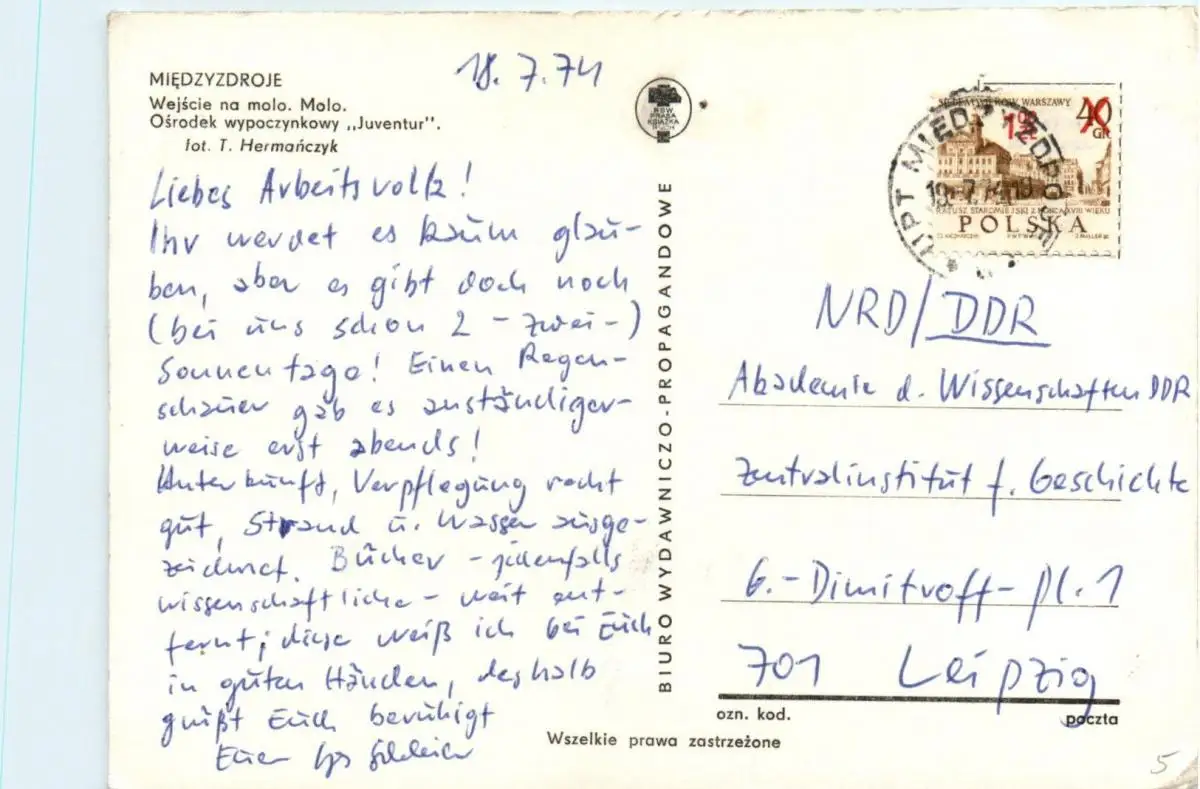 MIĘDZYZDROJE
Wejście na molo. Molo.
Ośrodek wypoczynkowy „Juventur”.
fot. T. Hermańczyk
18.7.74
Liebes Arbeitsvolk!
Ihr werdet es kaum glau-
ben, aber es gibt doch noch
(bei uns schon 2 – zwei –)
Sonnentage! Einen Regen-
schauer gab es anständiger-
weise erst abends!
Unterkunft, Verpflegung recht
gut, Strand u. Wasser ausge-
zeichnet. Bücher – jedenfalls
wissenschaftliche – weit ent-
fernt; diese weiß ich bei Euch
in guten Händen, deshalb
grüßt Euch beruhigt
Euer
BIURO WYDAWNICZO-PROPAGANDOWE
RSW
PRASA
KSIĄŻKA
RUCH
WARSZAWY
40
GR
RATUSZ STAROMIEJSKI Z KOŃCA XVIII WIEKU
POLSKA
UPT MIĘDZYZDROJE
19.-7.74.19
NRD/DDR
Akademie d. Wissenschaften DDR
Zentralinstitut f. Geschichte
G.-Dimitroff-Pl. 1
701 Leipzig
ozn. kod.
poczta
Wszelkie prawa zastrzeżone
5